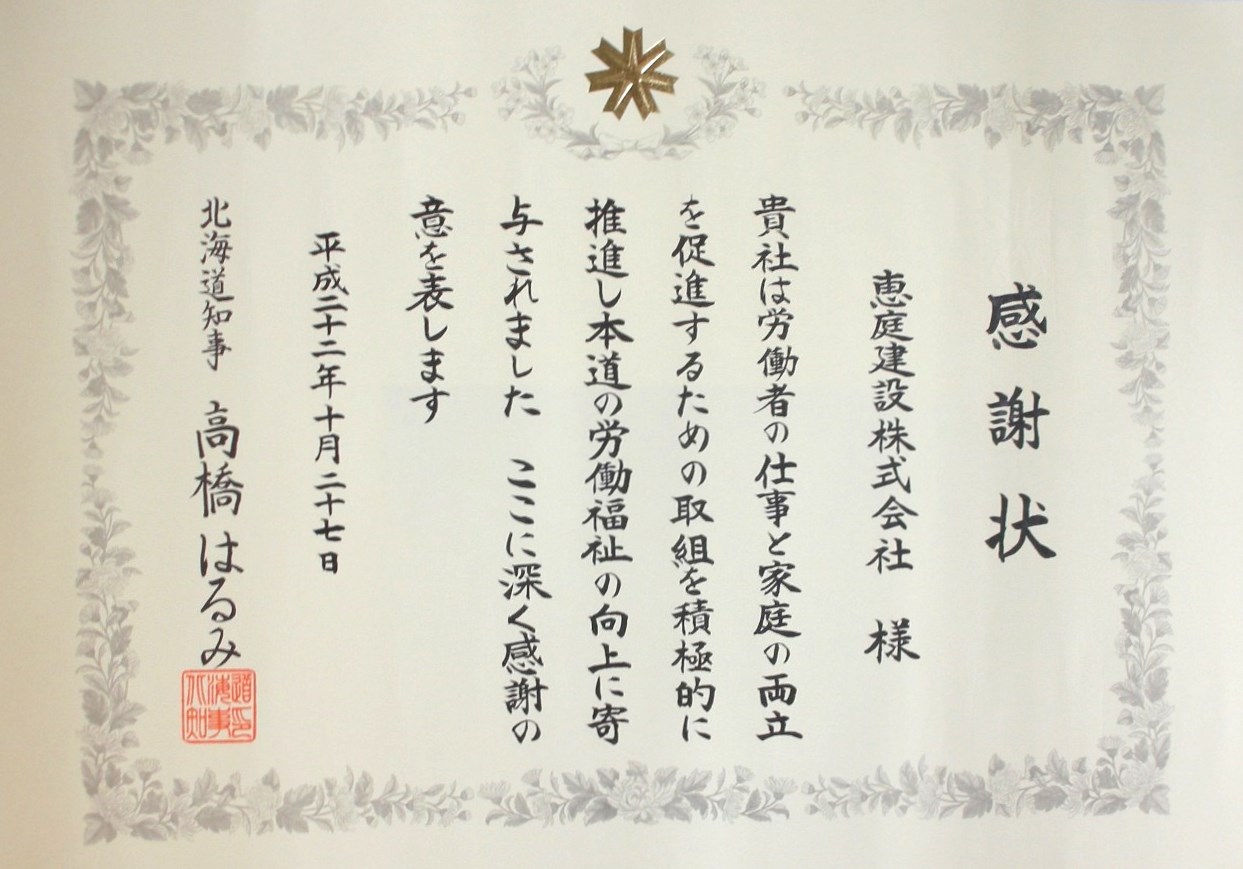 感謝状
恵庭建設株式会社 様
貴社は労働者の仕事と家庭の両立
を促進するための取組を積極的に
推進し本道の労働福祉の向上に寄
与されました ここに深く感謝の
意を表します
平成二十二年十月二十七日
北海道知事 高橋はるみ